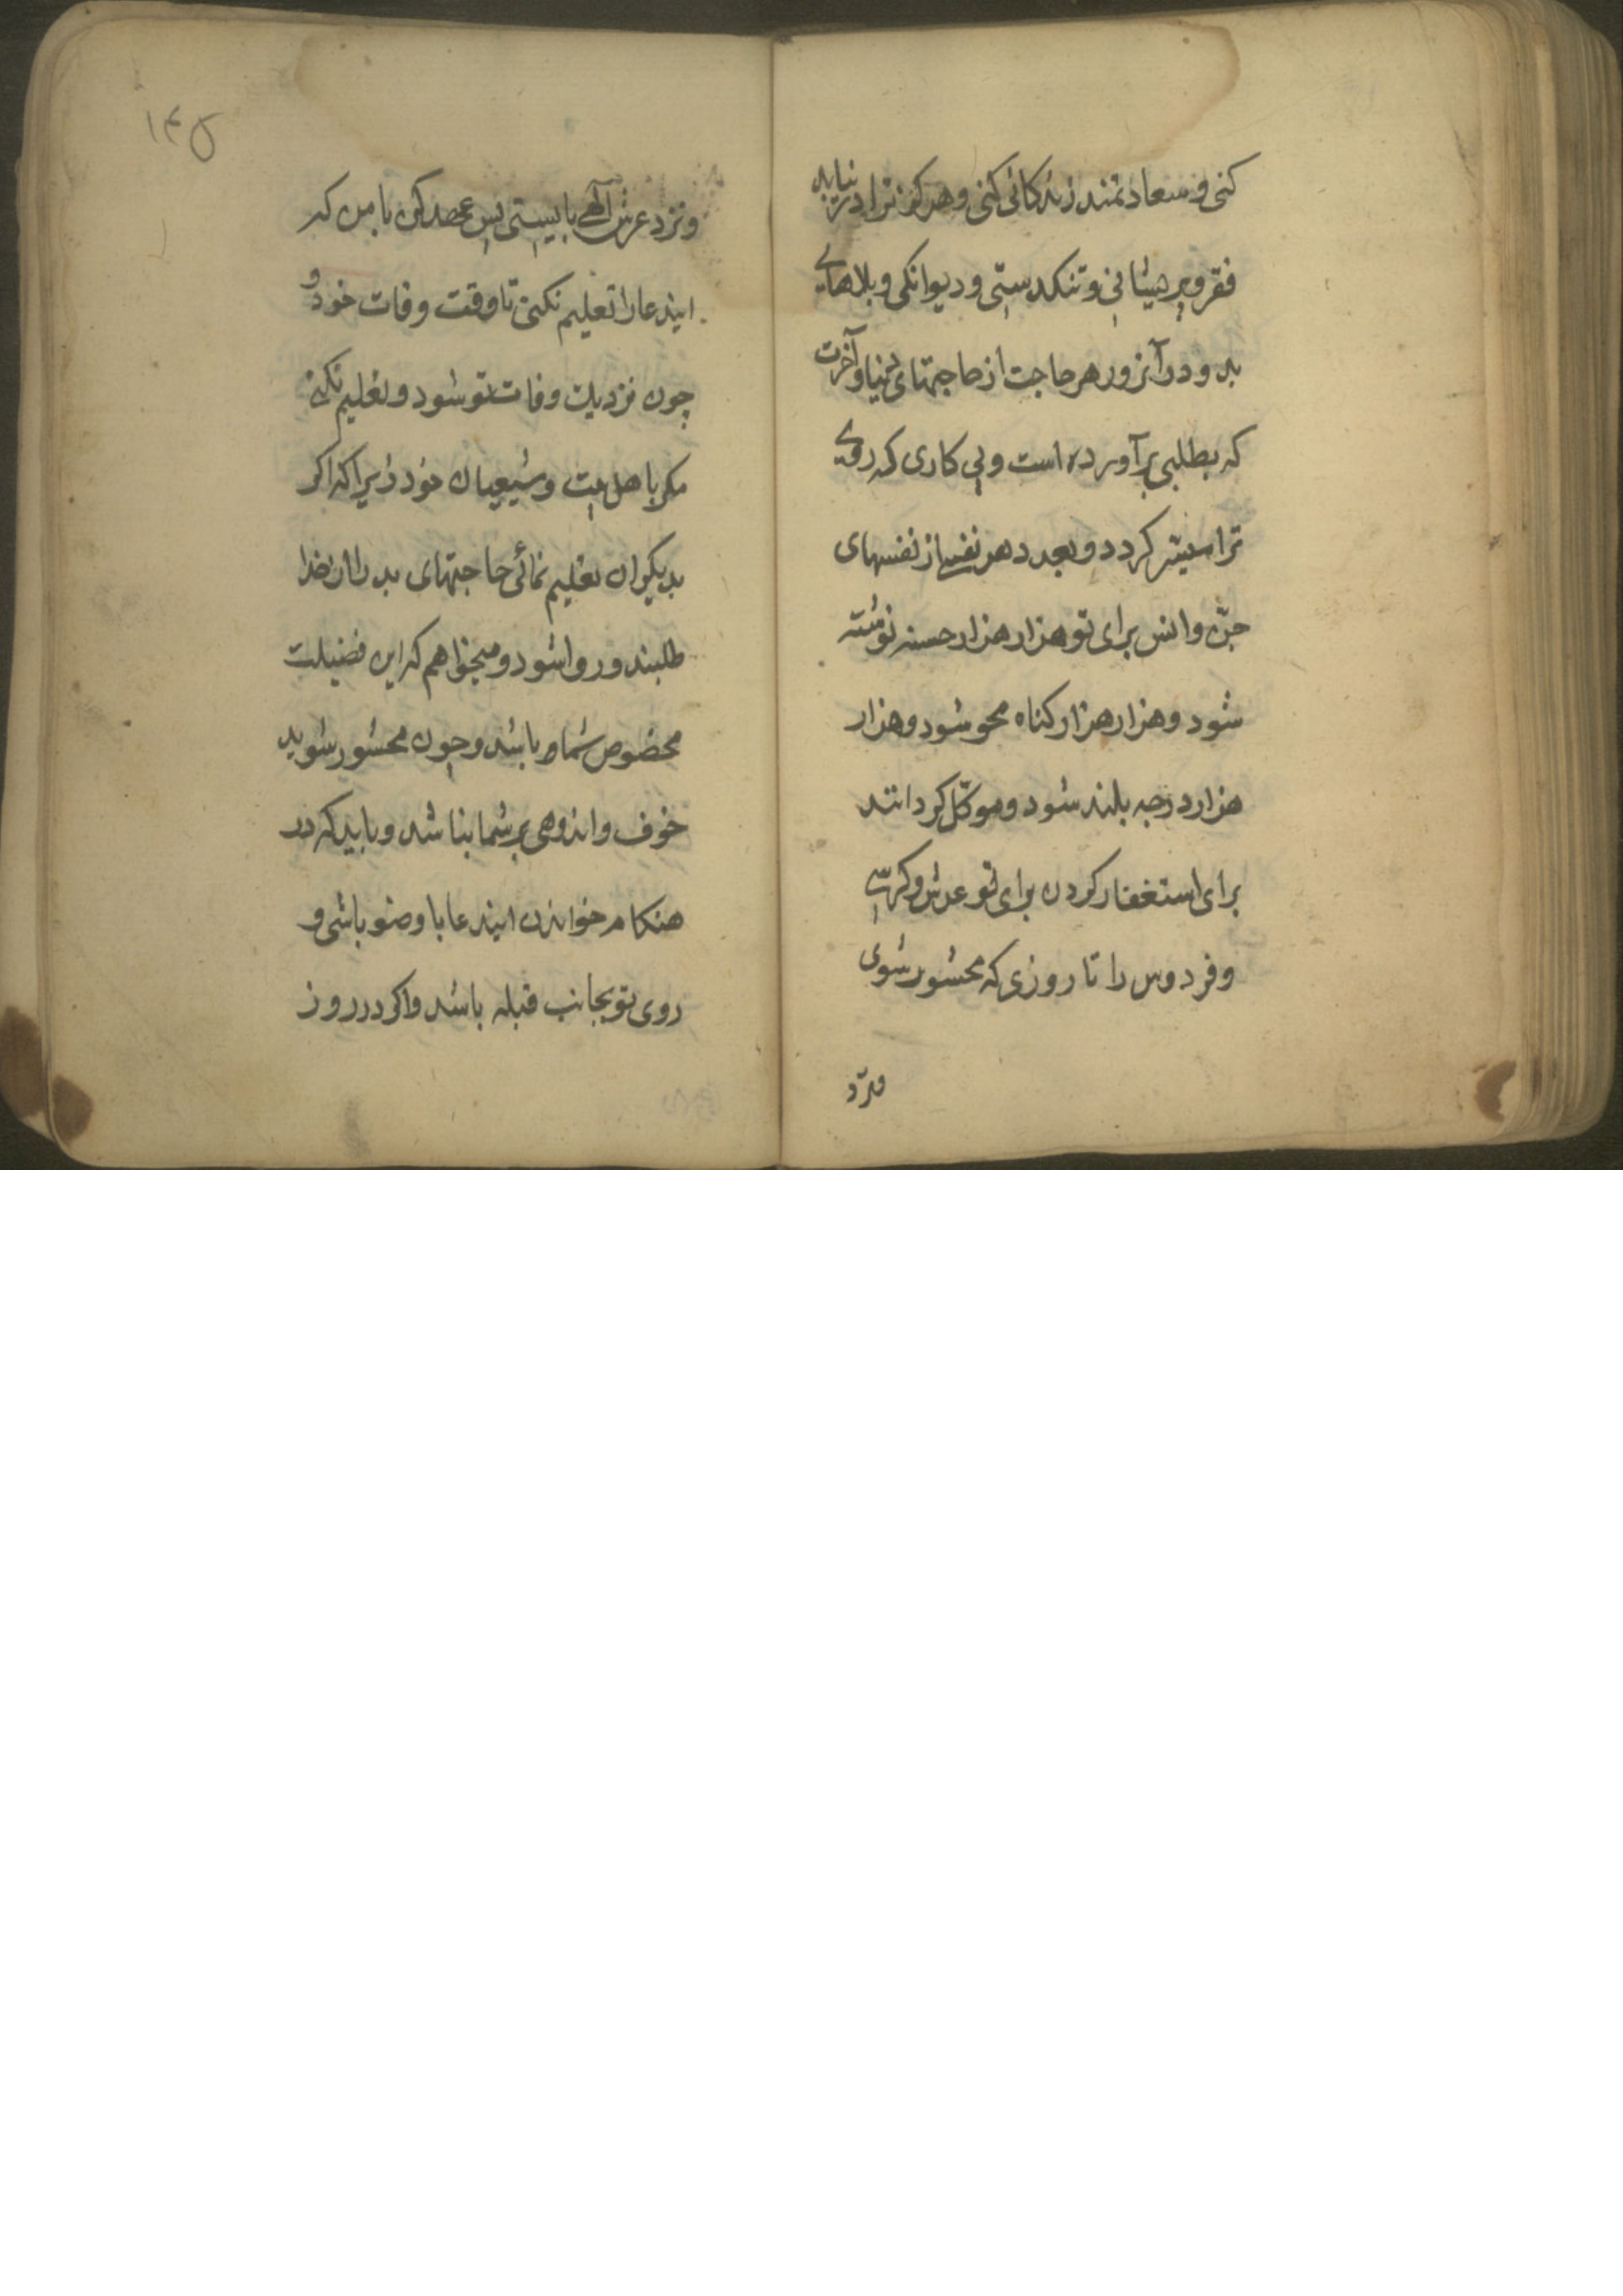 کنی و سعادتمند زندکانی کنی و هرکز ترا در نیابد
فقر و پریشانی و تنکدستی و دیوانکی و بلاهای
بد و در آنروز هر حاجت از حاجتهای دنیا و آخرت
که بطلبی برآورده است و پی کاری که روی
ترا میسّر کردد و بعدد هر نفسی از نفسهای
جنّ و انس برای تو هزار هزار حسنه نوشته
شود و هزار هزار کناه محو شود و هزار
هزار درجه بلند شود و موکّل کردانند
برای استغفار کردن برای تو عرش و کرسی
و فردوس را تا روزی که محشور شوی
و نزد
۱۴۵
و نزد عرش آلهی بایستی پس عهد کن با من که
ایندعا را تعلیم نکنی تا وقت وفات خود و
چون نزدیک وفات تو شود و تعلیم نکنی
مکر باهل بیت و شیعیان خود زیرا که اکر
بدیکران تعلیم نمائی حاجتهای بد را از خدا
طلبند و روا شود و میخواهم که این فضیلت
مخصوص شما باشد و چون محشور شوید
خوف و اندوهی بر شما نباشد و باید که در
هنکام خواندن ایندعا با وضو باشی و
روی تو بجانب قبله باشد و اکر در روز